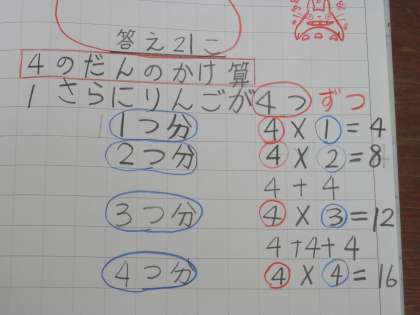 答え21こ
4のだんのかけ算
1さらにりんごが4つずつ
1つ分 4×1=4
2つ分 4×2=8
4+4
3つ分 4×3=12
4+4+4
4つ分 4×4=16